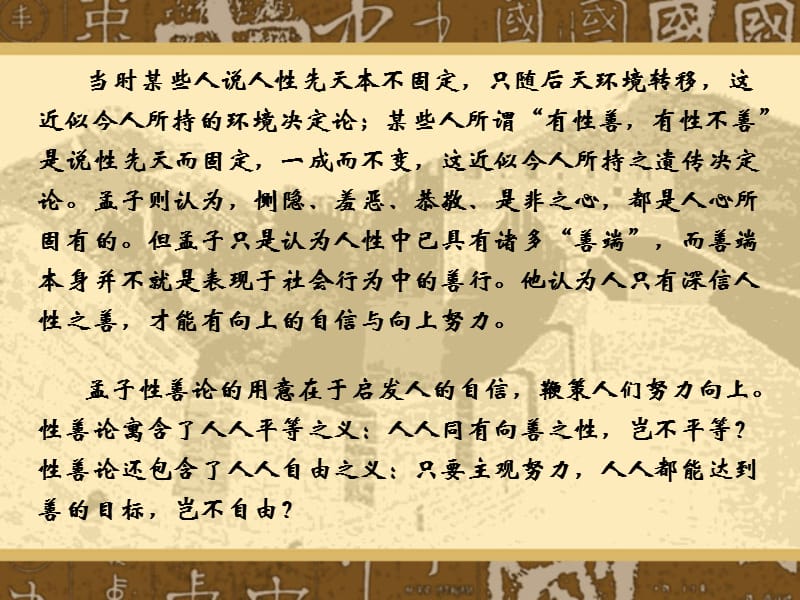 当时某些人说人性先天本不固定，只随后天环境转移，这
近似今人所持的环境决定论；某些人所谓“有性善，有性不善”
是说性先天而固定，一成而不变，这近似今人所持之遗传决定
论。孟子则认为，恻隐、羞恶、恭敬、是非之心，都是人心所
固有的。但孟子只是认为人性中已具有诸多“善端”，而善端
本身并不就是表现于社会行为中的善行。他认为人只有深信人
性之善，才能有向上的自信与向上努力。
孟子性善论的用意在于启发人的自信，鞭策人们努力向上。
性善论寓含了人人平等之义：人人同有向善之性，岂不平等？
性善论还包含了人人自由之义：只要主观努力，人人都能达到
善的目标，岂不自由？